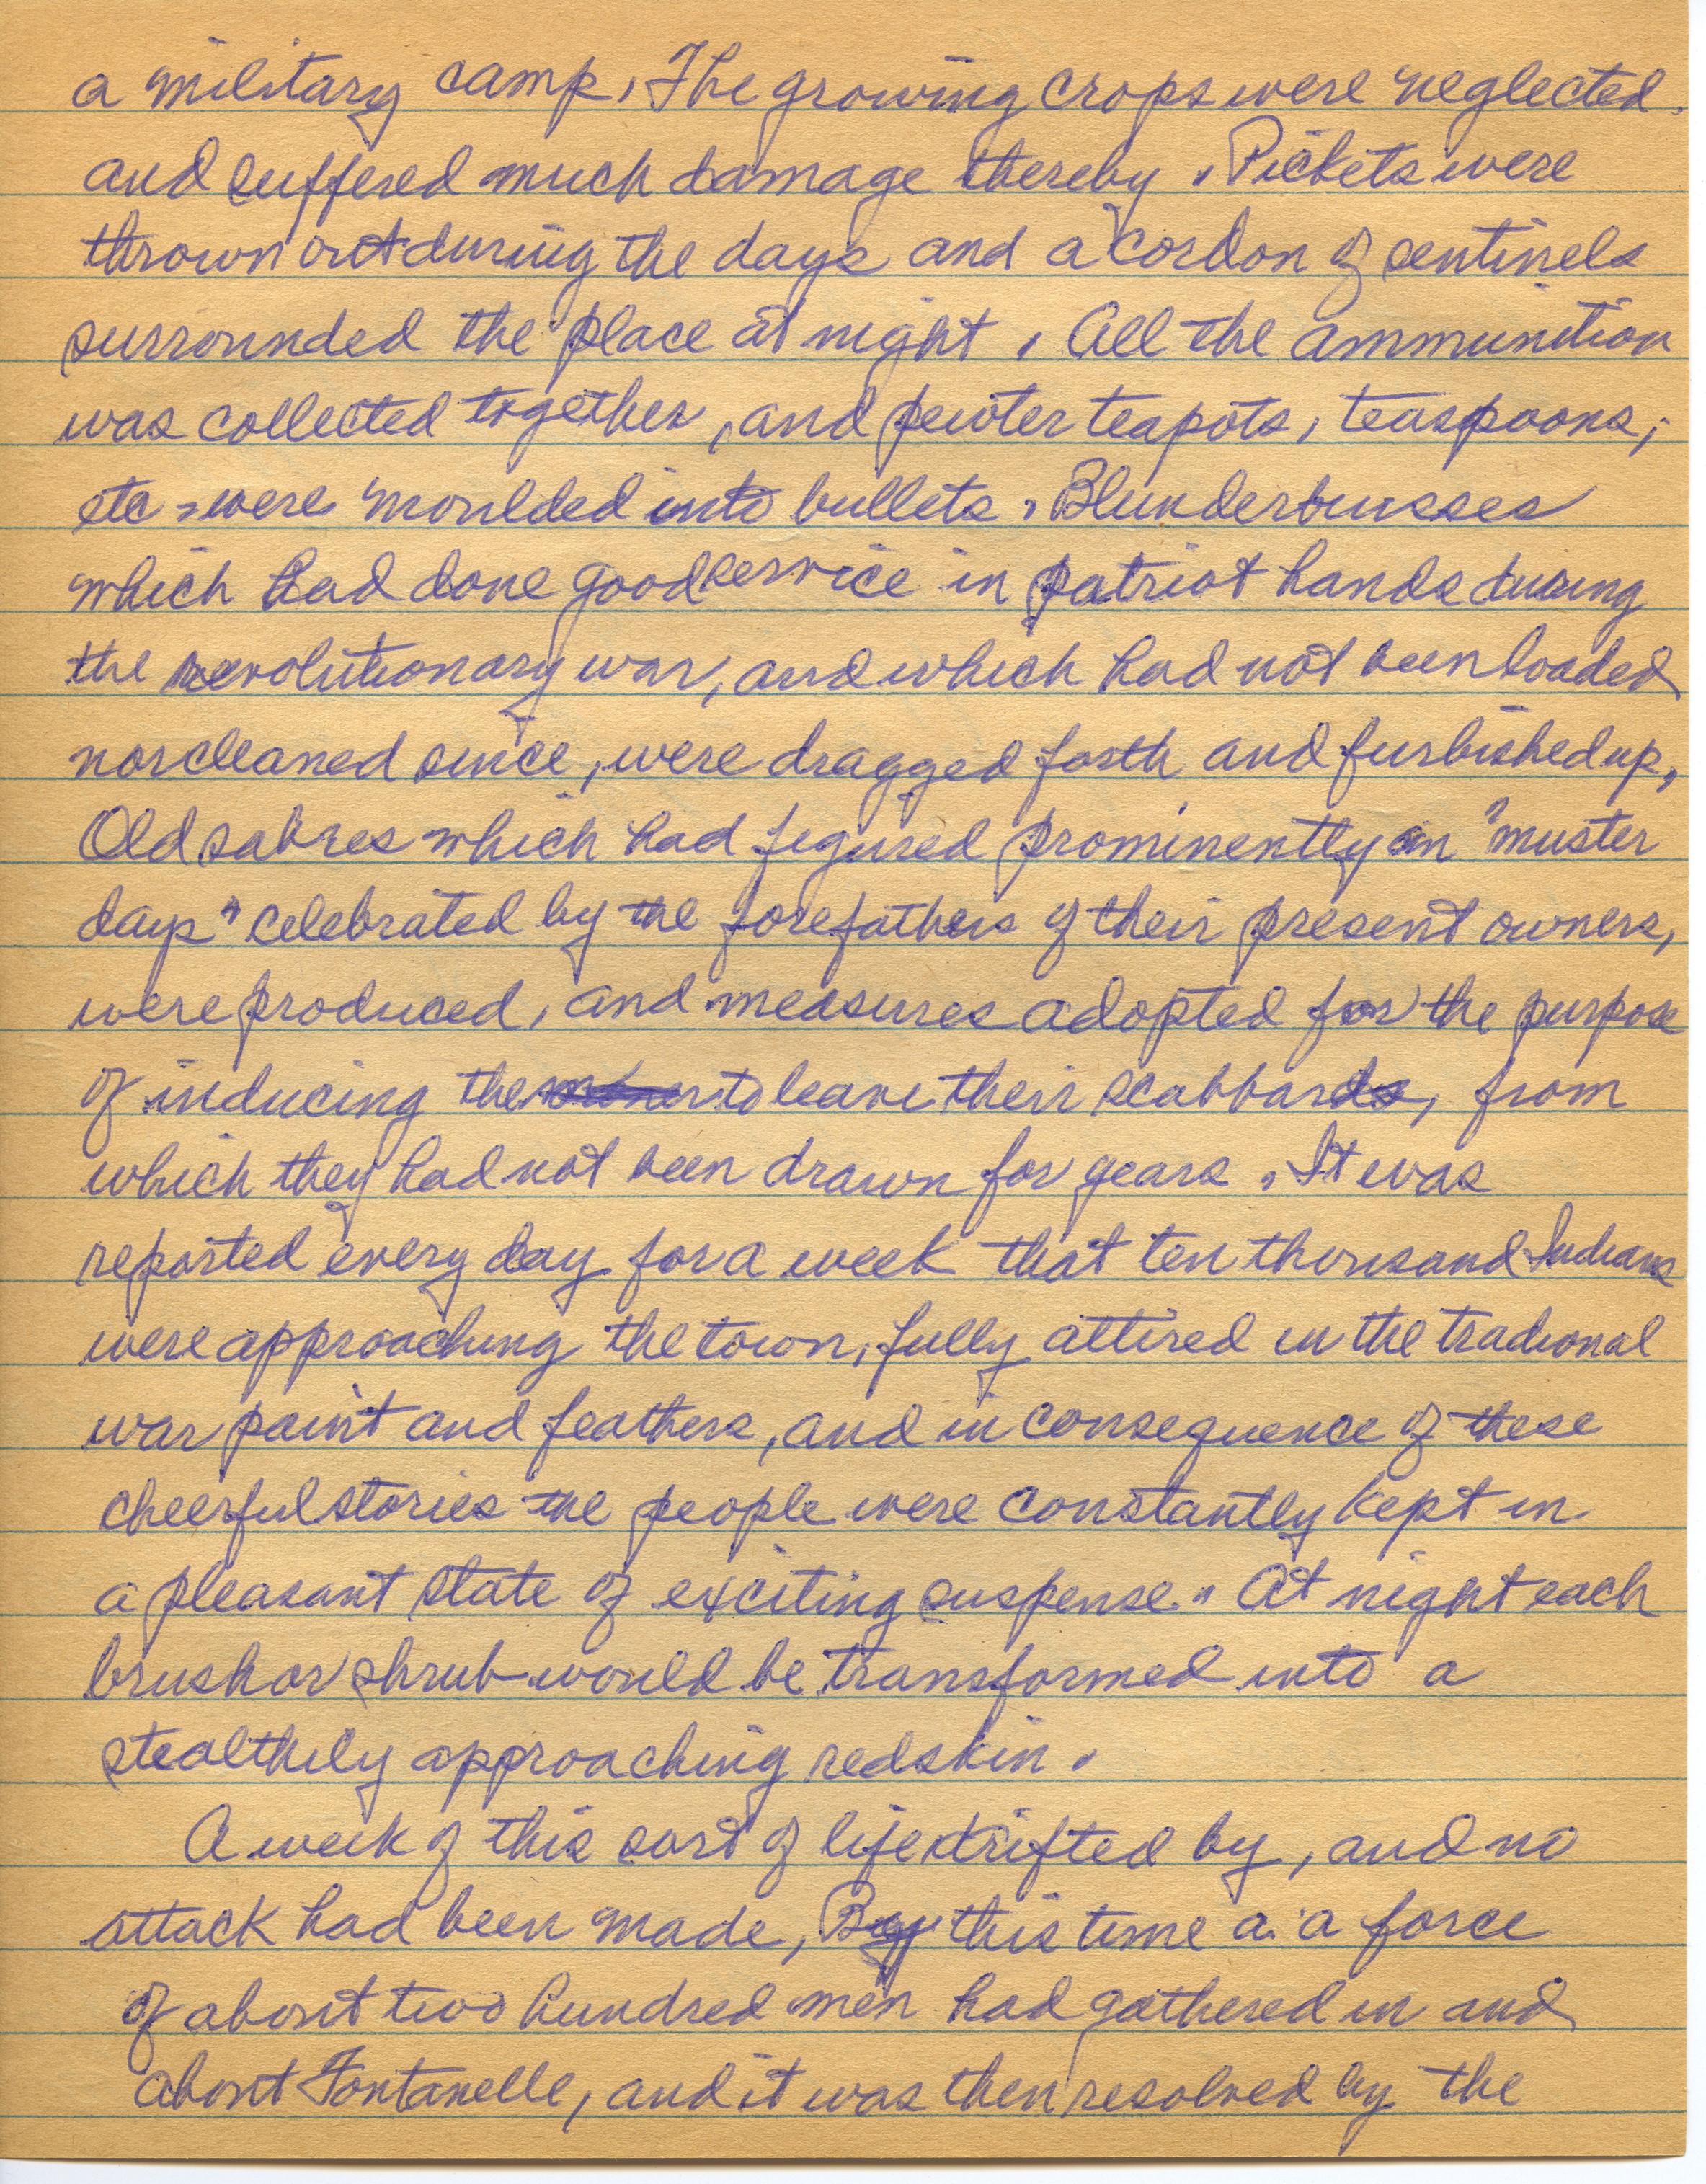 a military camp. The growing crops were neglected.
and suffered much damage thereby. Pickets were
thrown out during the days and a cordon of sentinels
surrounded the place at night. All the ammunition
was collected together, and pewter teapots, teaspoons,
etc. were moulded into bullets. Blunderbusses
which had done good service in patriot hands during
the revolutionary war, and which had not been loaded
nor cleaned since, were dragged forth and furbished up.
Old sabres which had figured prominently on "muster
days" celebrated by the forefathers of their present owners,
were produced, and measures adopted for the purpose
of inducing them to leave their scabbards, from
which they had not been drawn for years. It was
reported every day for a week that ten thousand Indians
were approaching the town, fully attired in the tradional
war paint and feathers, and in consequence of these
cheerful stories the people were constantly kept in
a pleasant state of exciting suspense. At night each
brush or shrub would be transformed into a
stealthily approaching redskin.
A week of this sort of life drifted by, and no
attack had been made, By this time a a force
of about two hundred men had gathered in and
about Fontanelle, and it was then resolved by the